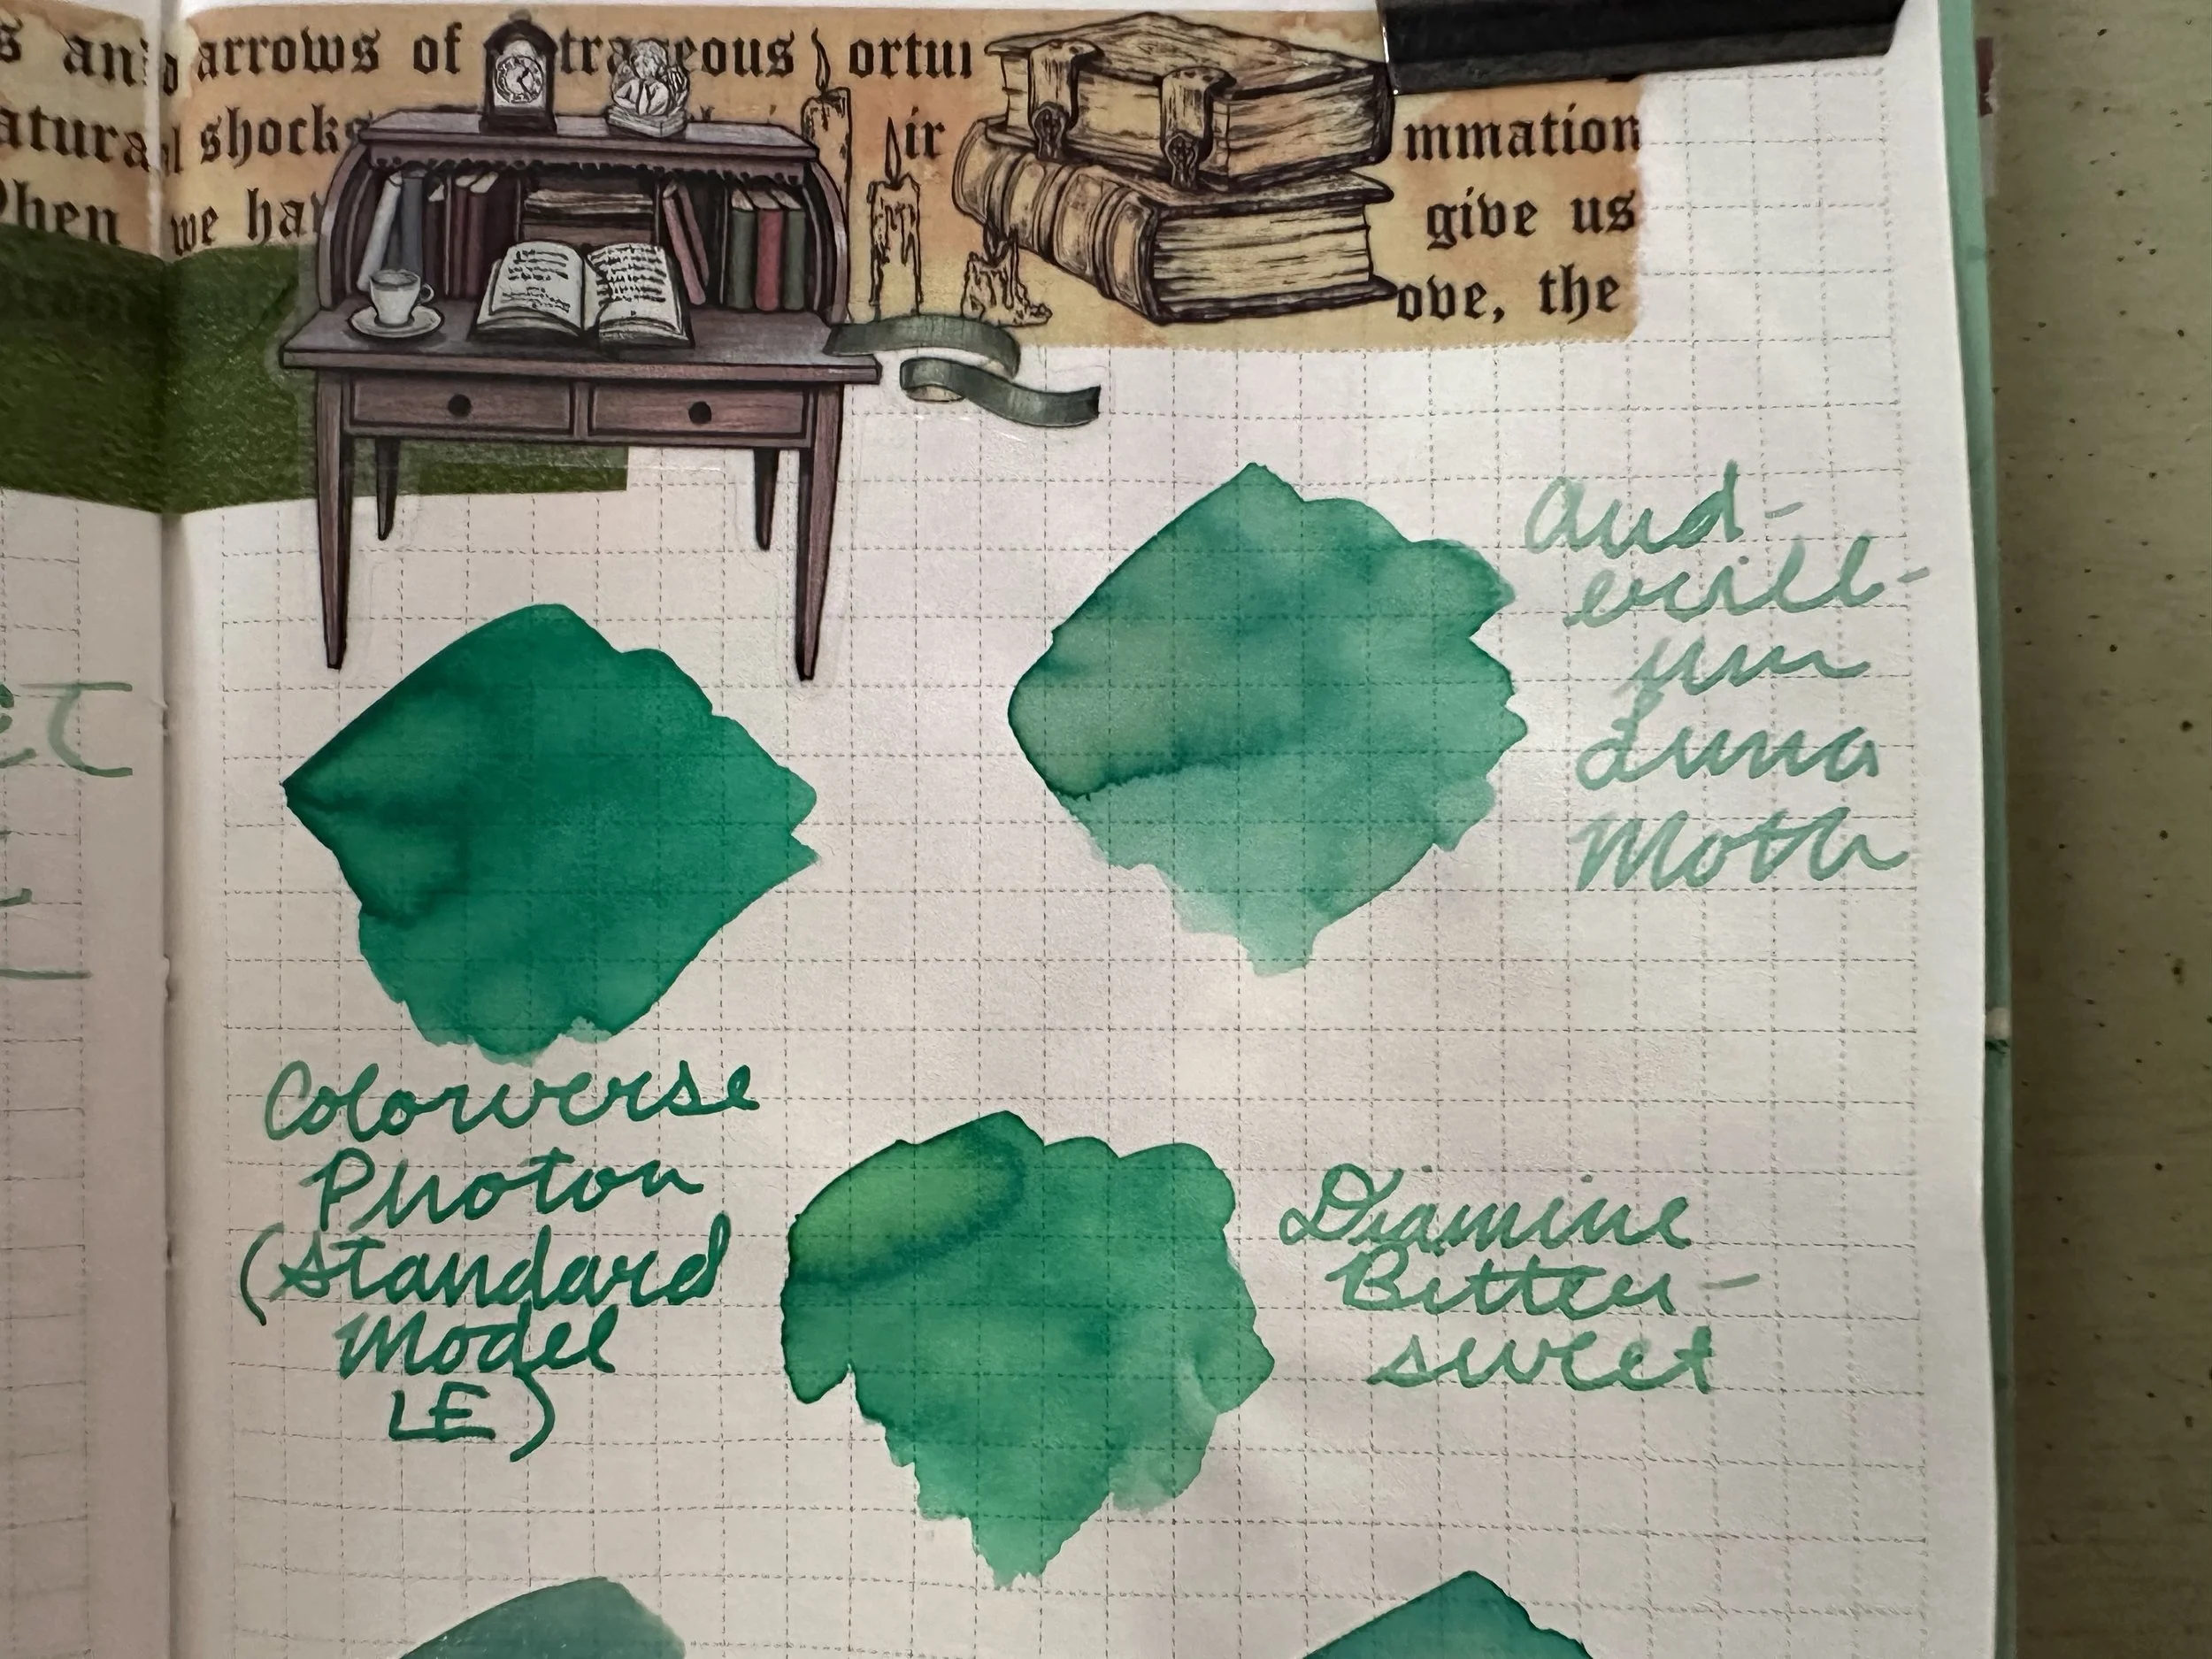 s and arrows of trageous ortu
atural shocks ir mmation
When we ha give us
ove, the
and-
erill-
ium
Luna
Moth
Colorverse
Photon
(Standard
Model
LE)
Diamine
Bitter-
sweet